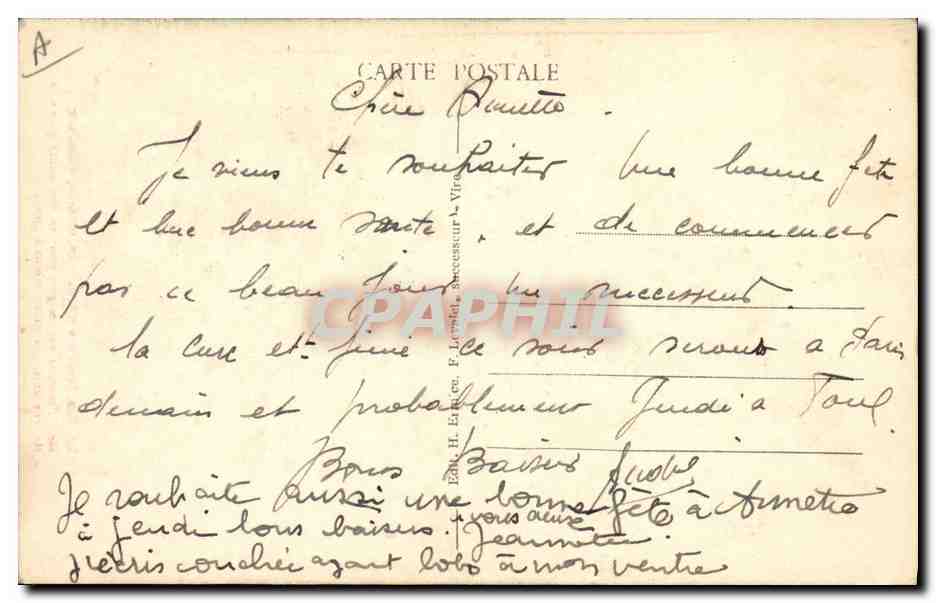 A
CARTE POSTALE
Chère
Je viens te souhaiter une bonne fête
et une bonne sante, et de commencer
par ce beau jour un successeur.
la cure est finie ce soir serons a Paris
demain et probablement Jeudi a Toul.
Bons Baisers
Je souhaite aussi une bonne fête à Annette
à Jeudi bons baisers. vous deux
Jeannette.
J'écris couchée ayant bobo à mon ventre
Edit. H. Ermice. F. Levalet, successeur, Vire
CPAPHIL